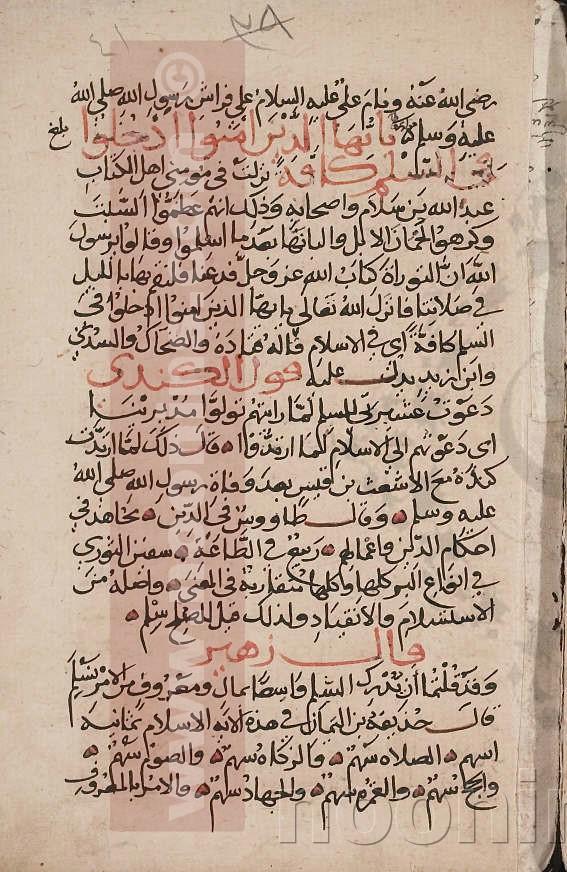 ٢٨
رضي الله عنه ونام علي عليه السلام علي فراش رسول الله صلي الله
عليه وسلم يا ايها الذين امنوا ادخلوا
بلغ
في السلم كافة نزلت في مومني اهل الكتاب
عبد الله بن سلام واصحابه وذلك انهم عظموا السبت
وكرهوا لحمان الابل والبانها بعد ما اسلموا وقالوا يرسول
الله ان التوراة كتاب الله عز وجل فدعنا فلنقم بها بالليل
في صلاتنا فانزل الله تعالي يا ايها الذين امنوا ادخلوا في
السلم كافة اي في الاسلام قاله قتادة والضحاك والسدي
وابن زيد يدل عليه قول الكندي
دعوت عشيرتي للسلم لما رايتهم تولوا مدبرينا
اي دعوتهم الي الاسلام لما ارتدوا قال ذلك لما ارتدت
كندة مع الاشعث بن قيس بعد وفاة رسول الله صلي الله
عليه وسلم وقال طاووس في الدين مجاهد في
احكام الدين واعمالهم ربيع في الطاعة سفين الثوري
في انواع البر كلها وكلها متقاربة في المعني واصله من
الاستسلام والانقياد ولذلك قيل للصلح سلم
قال زهير
وقد قلتما ان ندرك السلم واسعا بمال ومعروف من الامر نسلم
قال حذيفة بن اليمان في هذه الاية الاسلام ثمانية
اسهم الصلاه سهم والزكاه سهم والصوم سهم
والحج سهم والعمره سهم والجهاد سهم والامر بالمعروف
www.noor
noorin